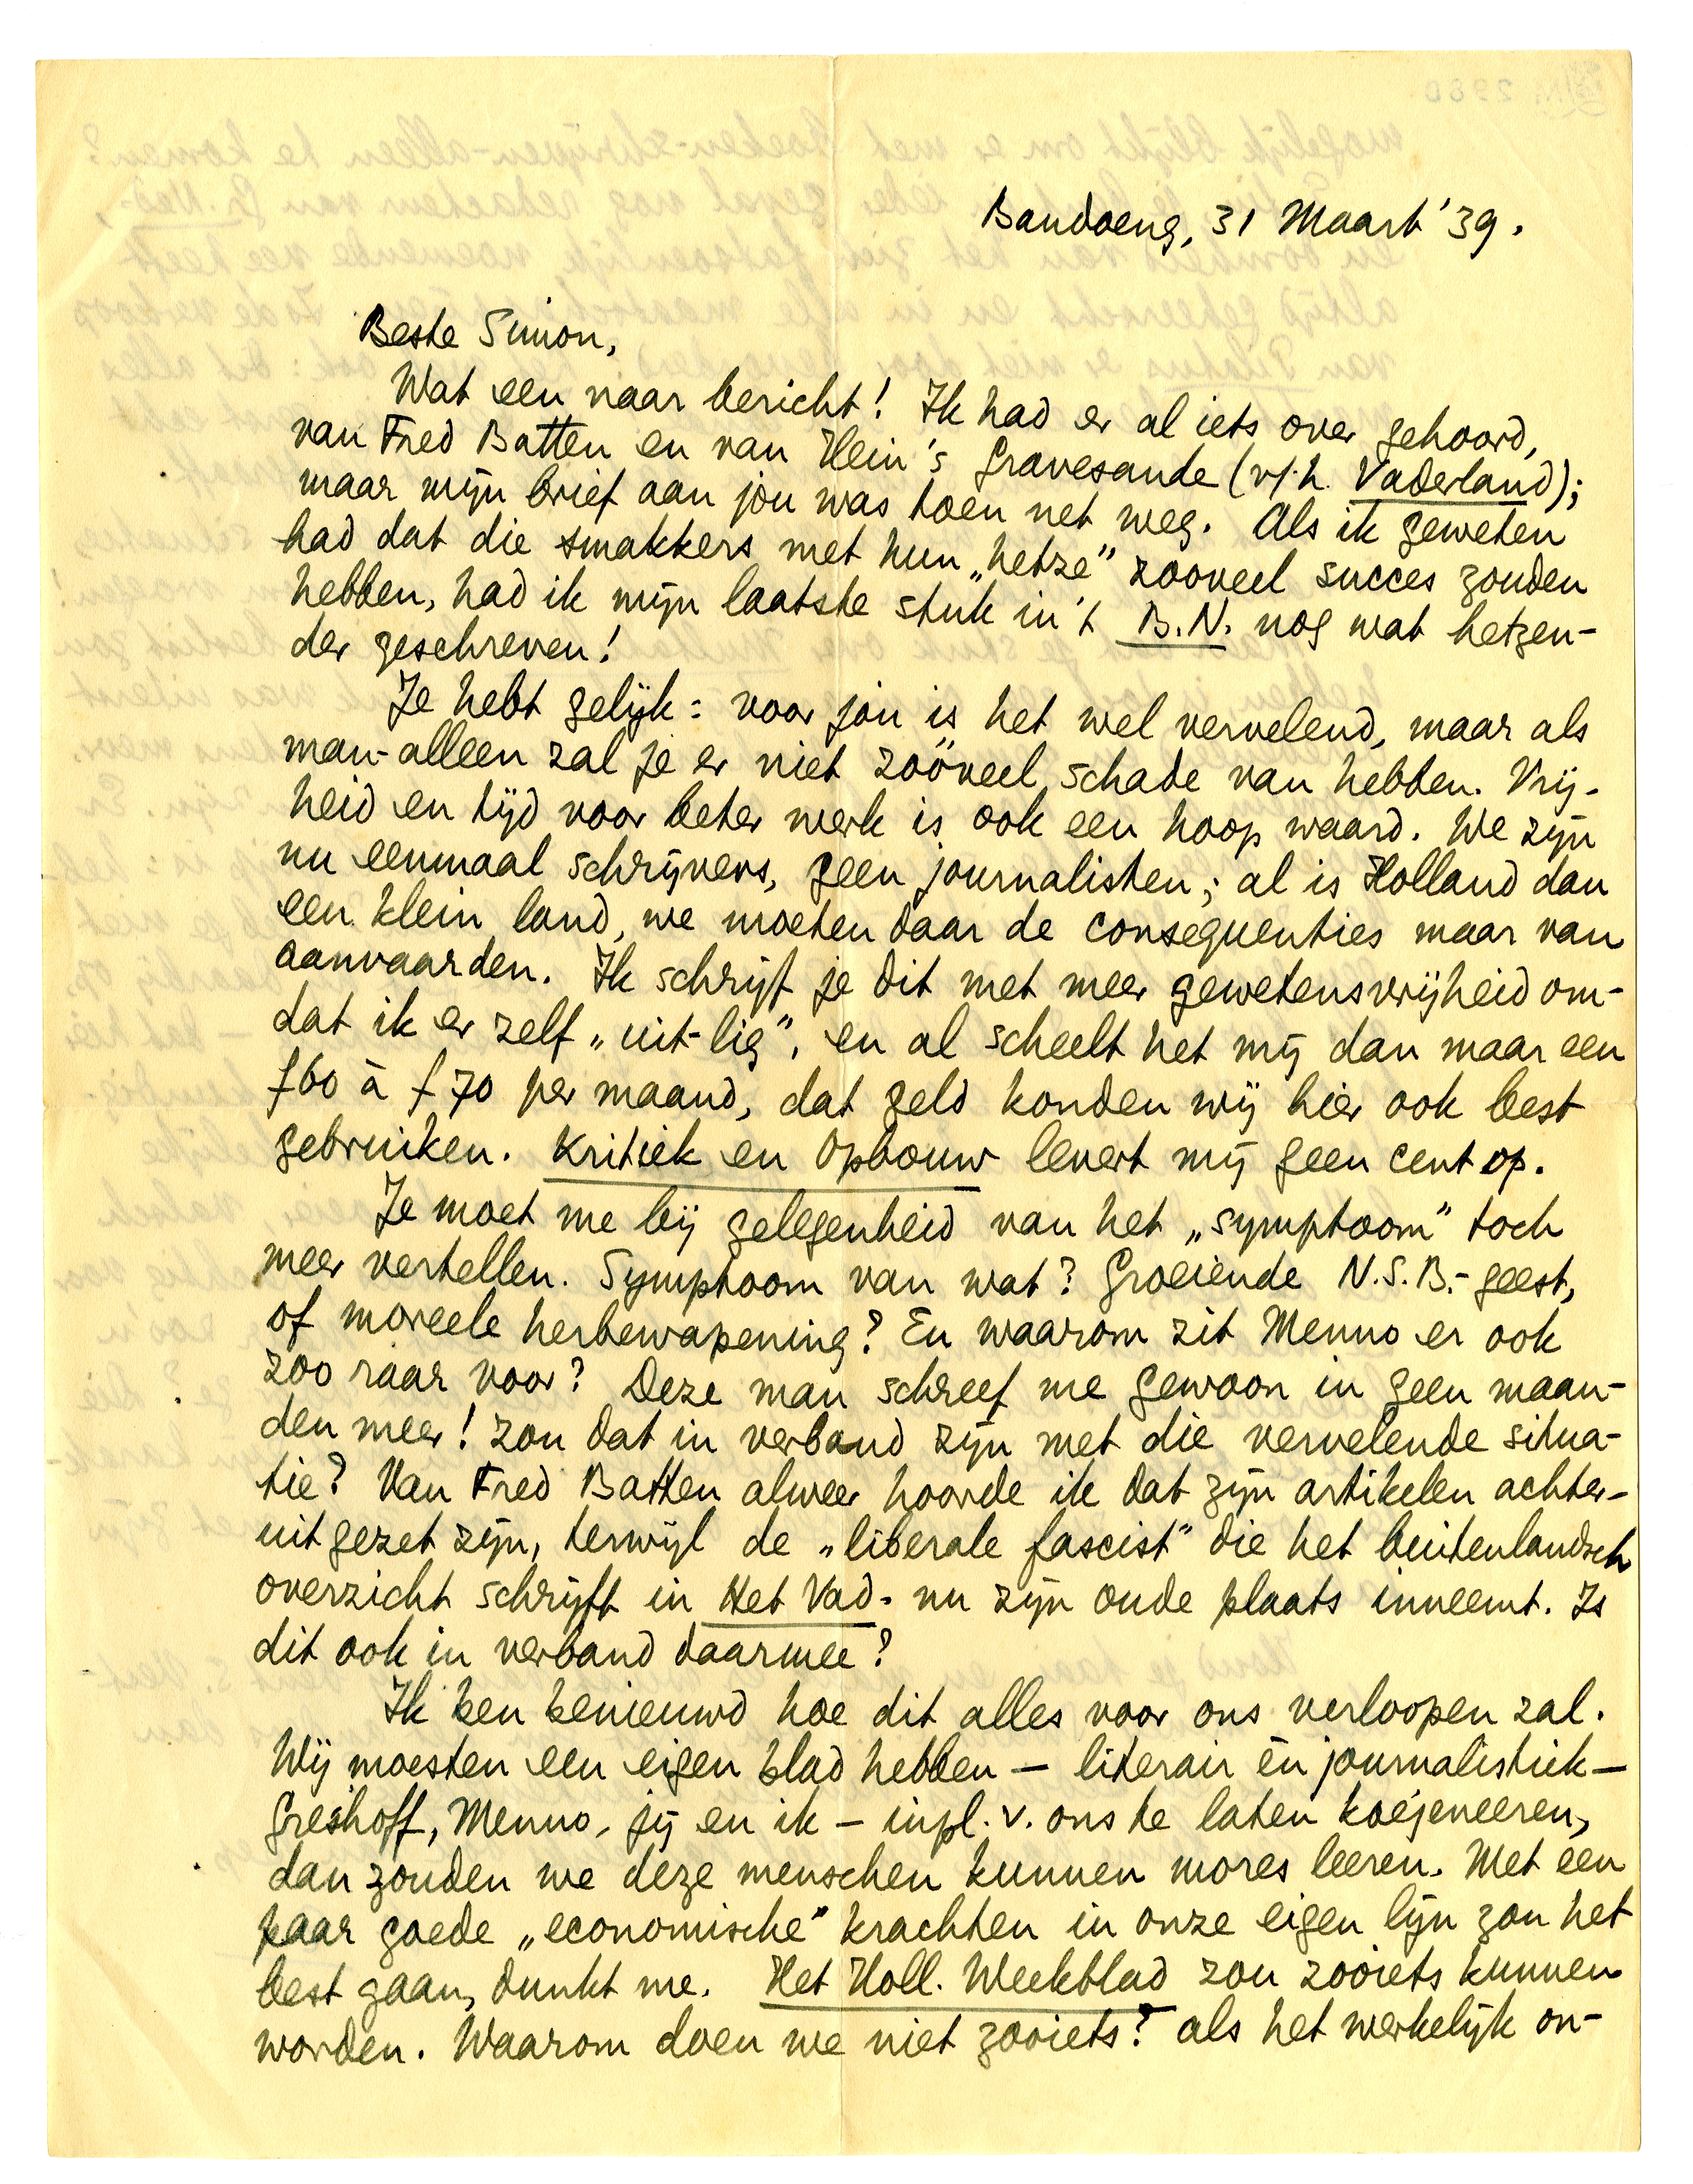 Bandoeng, 31 Maart '39.
Beste Simon,
Wat een naar bericht! Ik had er al iets over gehoord,
van Fred Batten en van Hein 's Gravesande (v/h. Vaderland);
maar mijn brief aan jou was toen net weg. Als ik geweten
had dat die smakkers met hun „hetze” zooveel succes zouden
hebben, had ik mijn laatste stuk in 't B.N. nog wat hetzen-
der geschreven!
Je hebt gelijk: voor jou is het wel vervelend, maar als
man-alleen zal je er niet zoóveel schade van hebben. Vrij-
heid en tijd voor beter werk is ook een hoop waard. We zijn
nu eenmaal schrijvers, geen journalisten; al is Holland dan
een klein land, we moeten daar de consequenties maar van
aanvaarden. Ik schrijf je dit met meer gewetensvrijheid om-
dat ik er zelf „uit-lig”, en al scheelt het mij dan maar een
f 60 à f 70 per maand, dat geld konden wij hier ook best
gebruiken. Kritiek en Opbouw levert mij geen cent op.
Je moet me bij gelegenheid van het „symptoom” toch
meer vertellen. Symptoom van wat? Groeiende N.S.B.-geest,
of moreele herbewapening? En waarom zit Menno er ook
zoo raar voor? Deze man schreef me gewoon in geen maan-
den meer! Zou dat in verband zijn met die vervelende situa-
tie? Van Fred Batten alweer hoorde ik dat zijn artikelen achter-
uit gezet zijn, terwijl de „liberale fascist” die het buitenlandsch
overzicht schrijft in Het Vad. nu zijn oude plaats inneemt. Is
dit ook in verband daarmee?
Ik ben benieuwd hoe dit alles voor ons verloopen zal.
Wij moesten een eigen blad hebben — literair èn journalistiek —
Greshoff, Menno, jij en ik — inpl. v. ons te laten koejeneeren,
dan zouden we deze menschen kunnen mores leeren. Met een
paar goede „economische” krachten in onze eigen lijn zou het
best gaan, dunkt me. Het Holl. Weekblad zou zooiets kunnen
worden. Waarom doen we niet zooiets? als het werkelijk on-